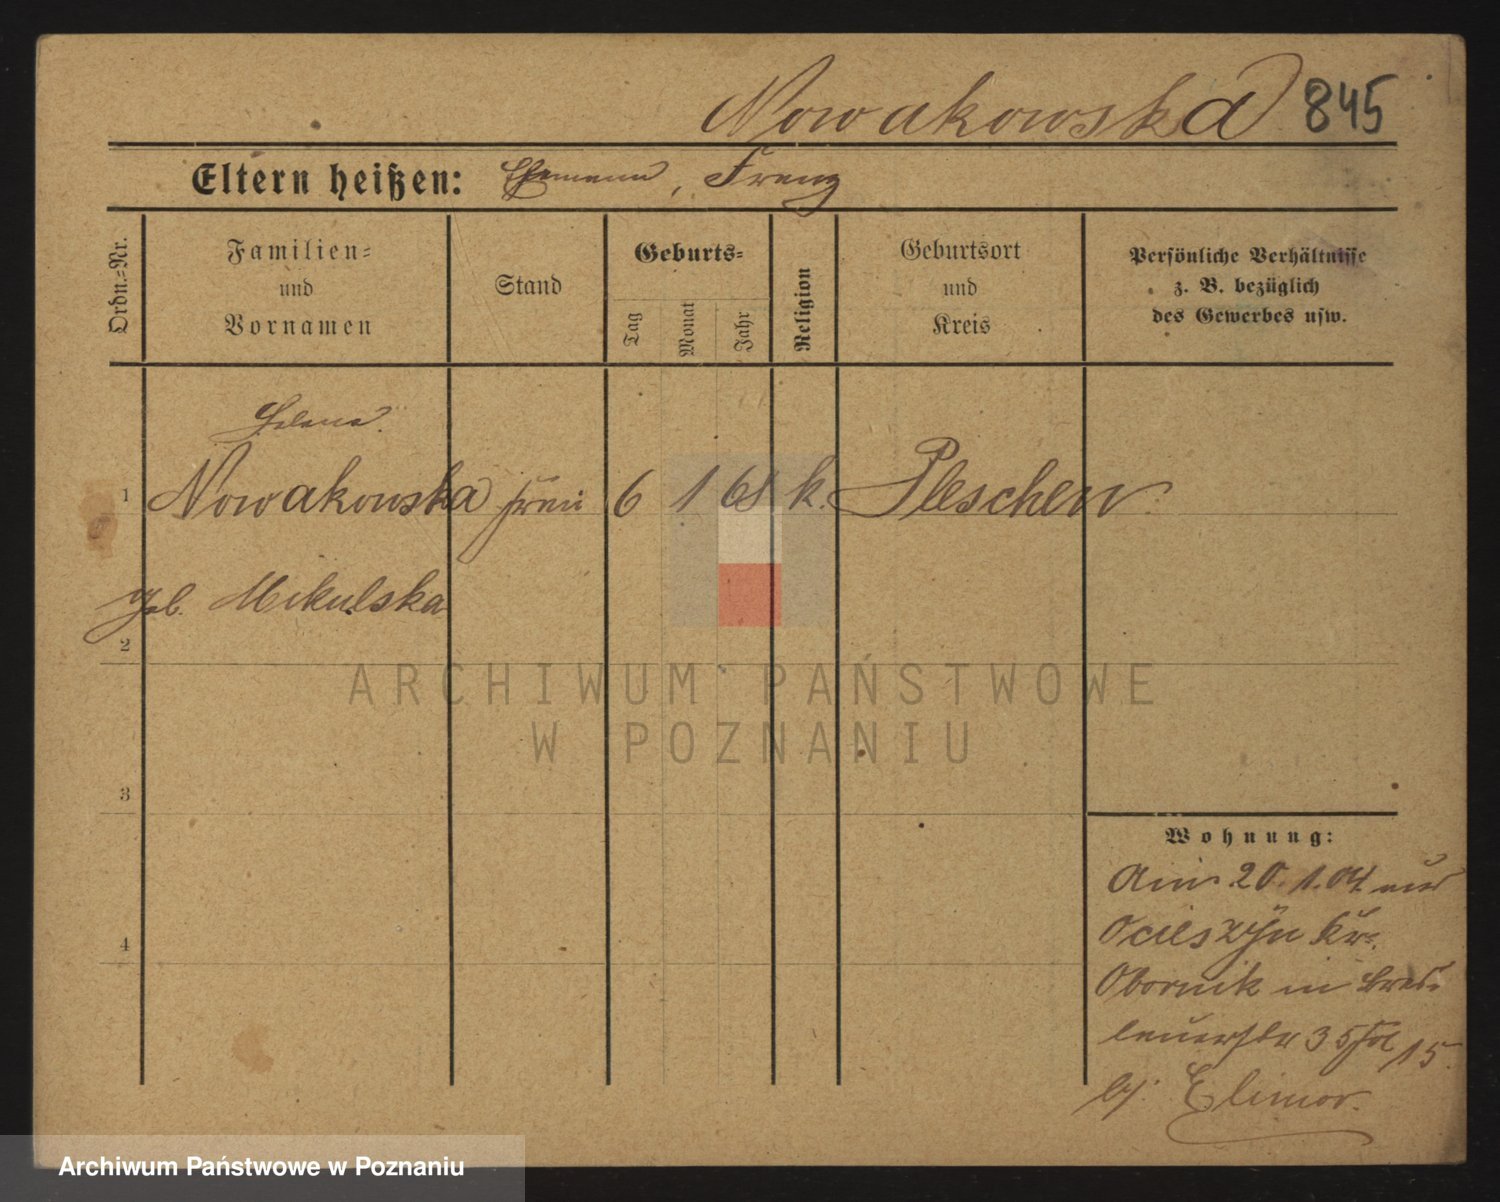 Nowakowska 845
Eltern heißen: Ehemann, Franz
Ordn.=Nr.
Familien=
und
Vornamen
Stand
Geburts=
Tag
Monat
Jahr
Religion
Geburtsort
und
Kreis
Persönliche Verhältnisse
z. B. bezüglich
des Gewerbes usw.
Helena
1 Nowakowska Frau 6 1 68 k. Pleschen
geb. Mikulska
2
3
4
Wohnung:
Am 20.1.04 aus
Ocieszyn Kr.
Obornik in Bres-
lauerstr 35 15
bj.
ARCHIWUM PAŃSTWOWE
W POZNANIU
Archiwum Państwowe w Poznaniu